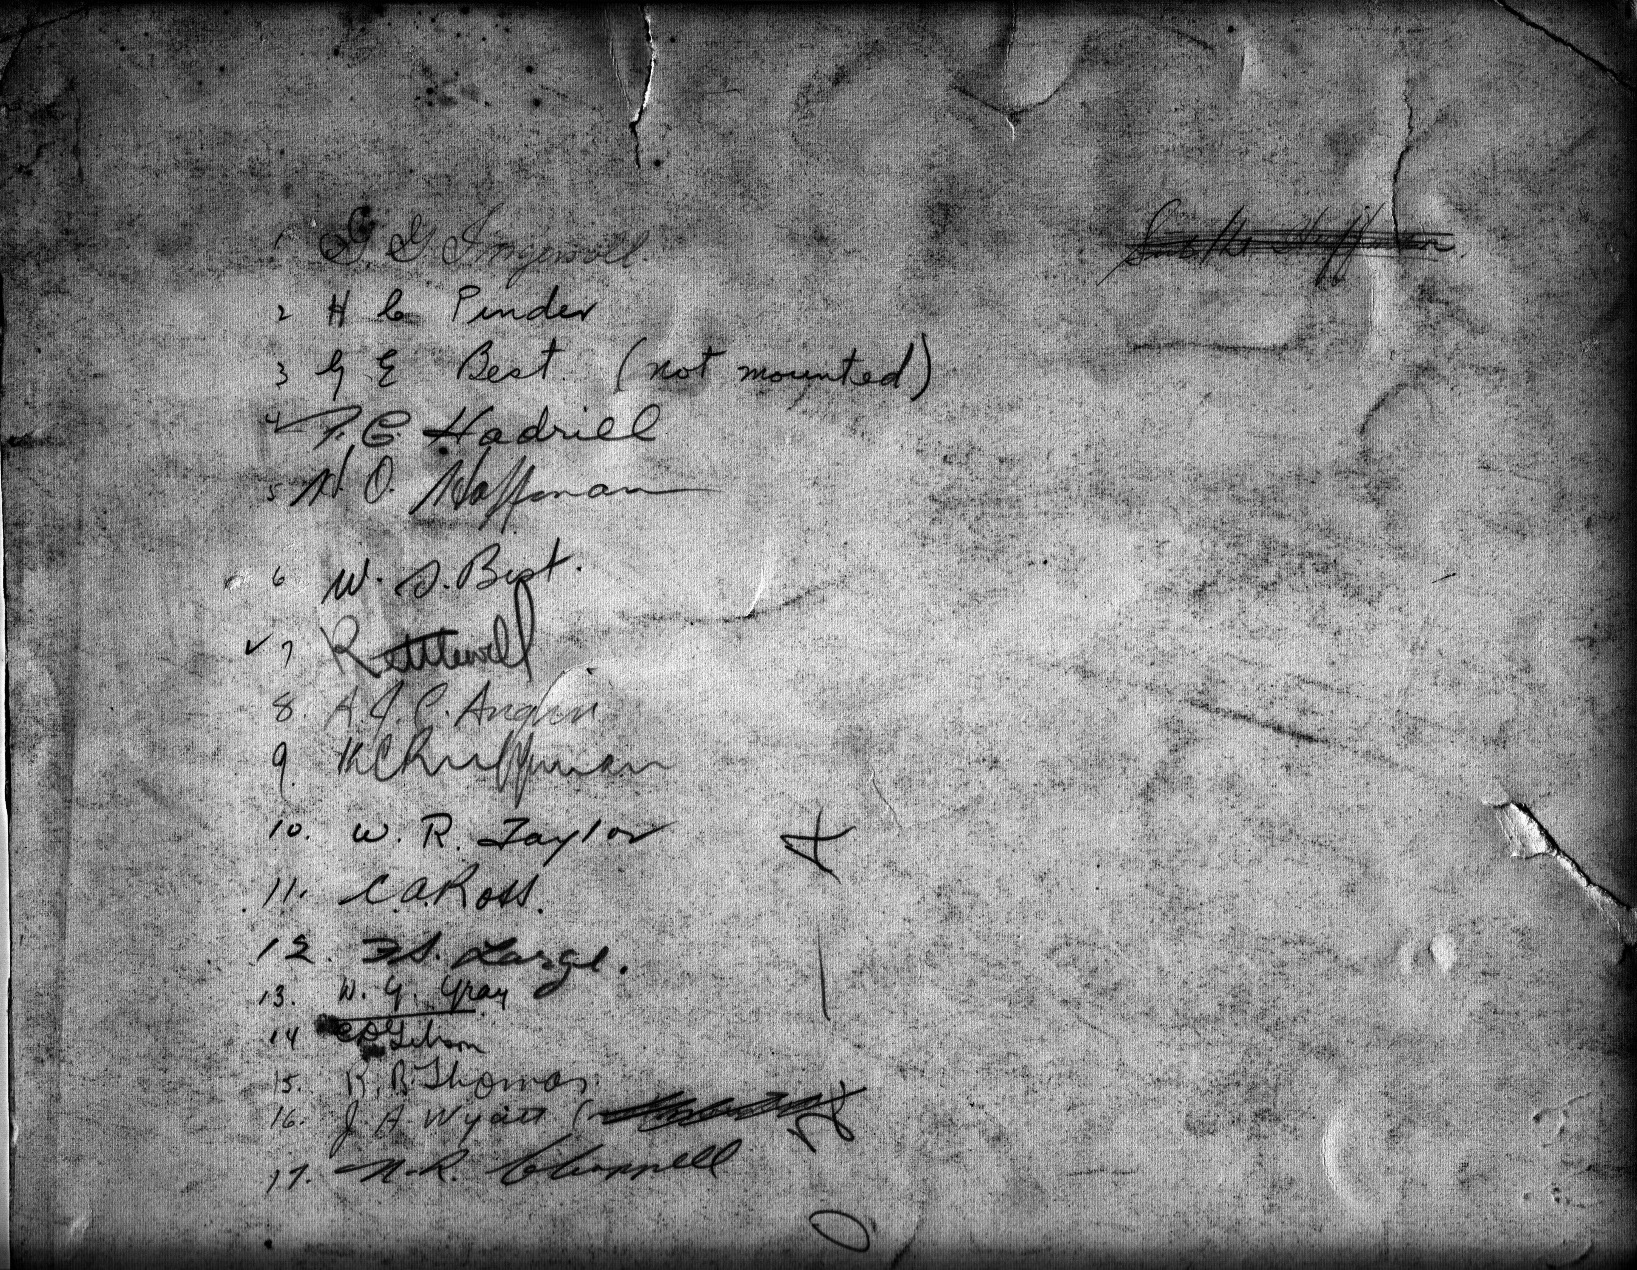 1 G. G. Ingersoll
2 H C Pinder
3 G E Best (not mounted)
4 F. C. Hadrill
5 H. O. Hoffman
6 W. S. Best.
7 Rettewell
8. A. J. P. Anglin
9. Huffman
10. W. R. Taylor
11. C. A. Ross.
12. F. S. Large.
13. W. G. Gray
14 Gibson
15. K. B. Thomas
16. J. A. Wyatt
17. N. R. Chappell